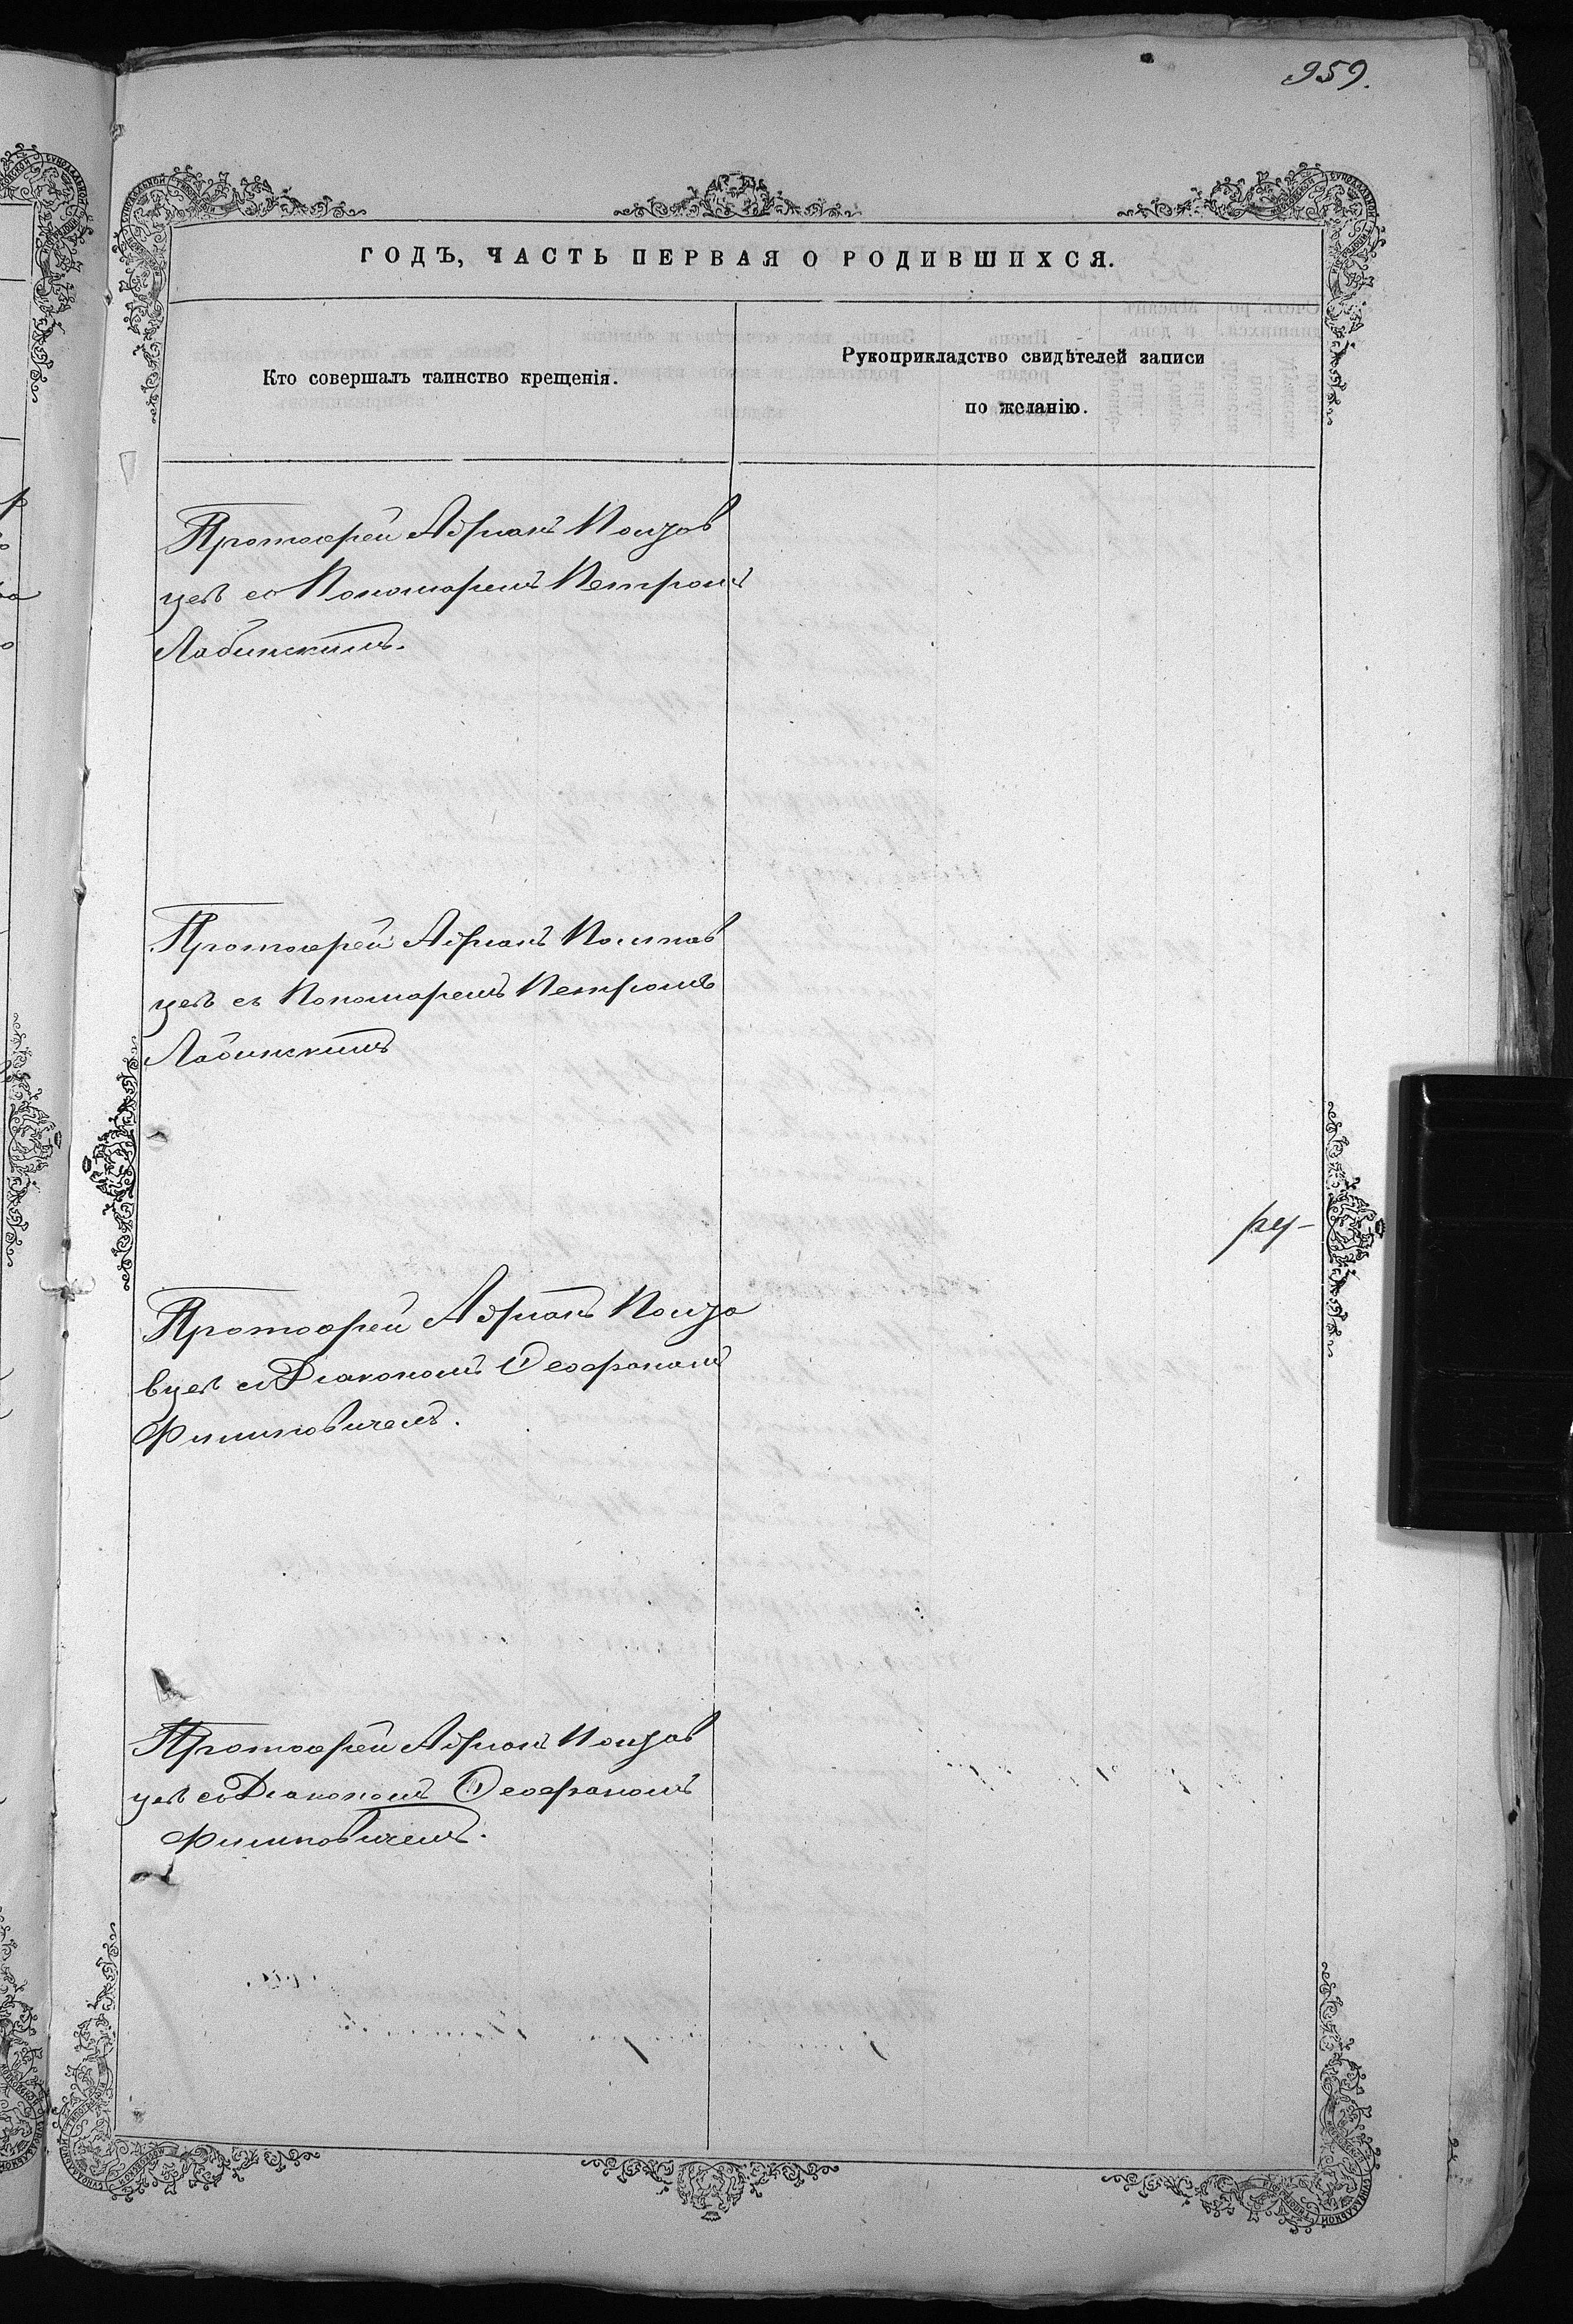 959.
ГОДЪ, ЧАСТЬ ПЕРВАЯ О РОДИВШИХСЯ.
Кто совершалъ таинство крещенія.
Рукоприкладство свидѣтелей записи
по желанію.
Протоіерей Адріанъ
цевъ съ Пономаремъ Петромъ
Лабинскимъ.
Протоіерей Адріанъ
цевъ съ Пономаремъ Петромъ
Лабинскимъ
Протоіерей Адріанъ
вцевъ съ Діакономъ Ѳеофаномъ
Филиповичемъ.
Протоіерей Адріанъ
цевъ съ Діакономъ Ѳеофаномъ
Филиповичемъ.